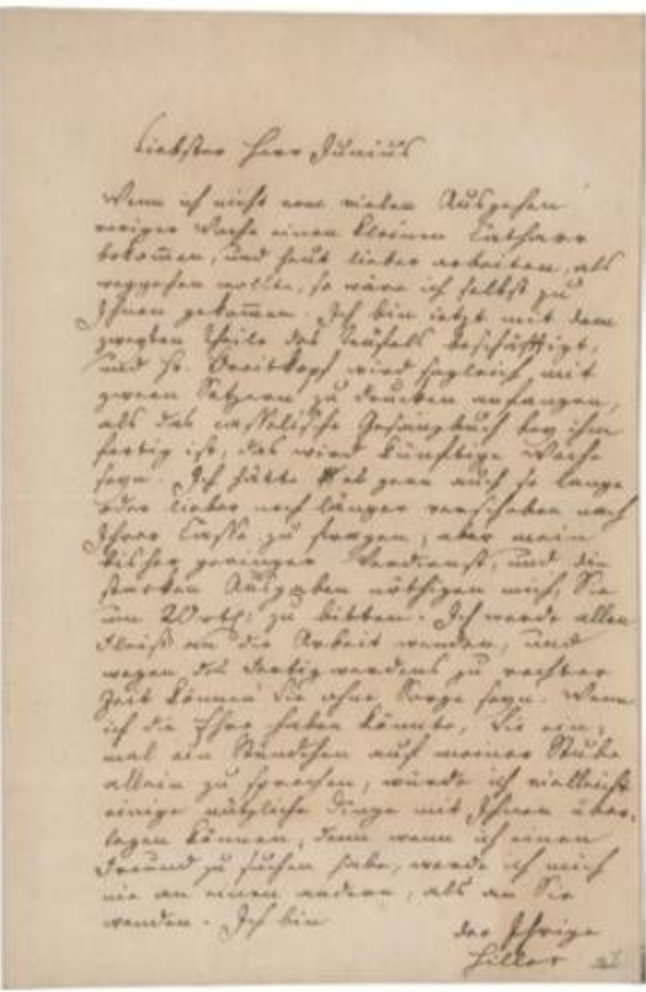 Liebster Herr Junius
Wenn ich nicht vom vielen Ausgehen
voriger Woche einen kleinen Catharr
bekom̅en, und heut lieber arbeiten, als
weggehen wollte, so wäre ich selbst zu
Ihnen gekom̅en. Ich bin ietzt mit dem
zweyten Theile des Teufels beschäfftigt,
und Hr. Breitkopf wird sogleich mit
zween Setzern zu drucken anfangen,
als das casselische Gesangbuch bey ihm
fertig ist; das wird künftige Woche
seyn. Ich hätte es gern auch so lange
oder lieber noch länger verschoben nach
Ihrer Casse zu fragen, aber mein
bisher geringer Verdienst, und die
starken Ausgaben nöthigen mich, Sie
um 20 rthl: zu bitten. Ich werde allen
Fleiß an die Arbeit wenden, und
wegen des Fertigwerdens zu rechter
Zeit können Sie ohne Sorge seyn. Wenn
ich die Ehre haben könnte, Sie ein-
mal ein Stündchen auf meiner Stube
allein zu sprechen, würde ich vielleicht
einige nützliche Dinge mit Ihnen über-
legen können, denn wenn ich einen
Freund zu suchen habe, werde ich mich
nie an einen andern, als an Sie
wenden. Ich bin
der Ihrige
Hiller